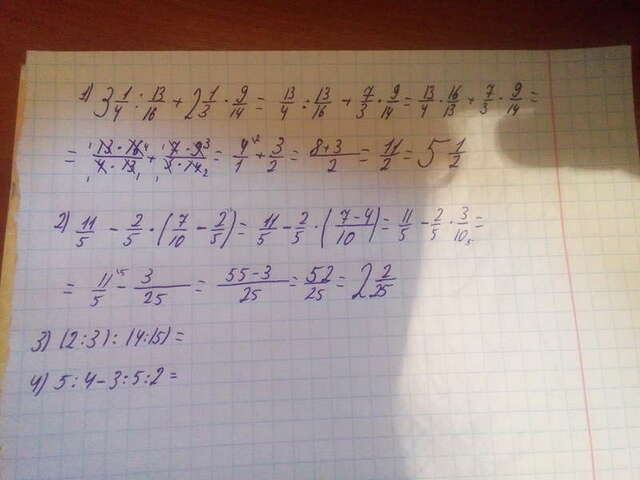 1) 3 1/4 : 13/16 + 2 1/3 · 9/14 = 13/4 : 13/16 + 7/3 · 9/14 = 13/4 · 16/13 + 7/3 · 9/14 =
= 13 · 16/4 · 13 + 7 · 9/3 · 14 = 4/1 + 3/2 = 8+3/2 = 11/2 = 5 1/2
2) 11/5 - 2/5 · (7/10 - 2/5) = 11/5 - 2/5 · (7-4/10) = 11/5 - 2/5 · 3/10 =
= 11/5 - 3/25 = 55-3/25 = 52/25 = 2 2/25
3) (2:3) : (4:15) =
4) 5:4-3:5:2 =